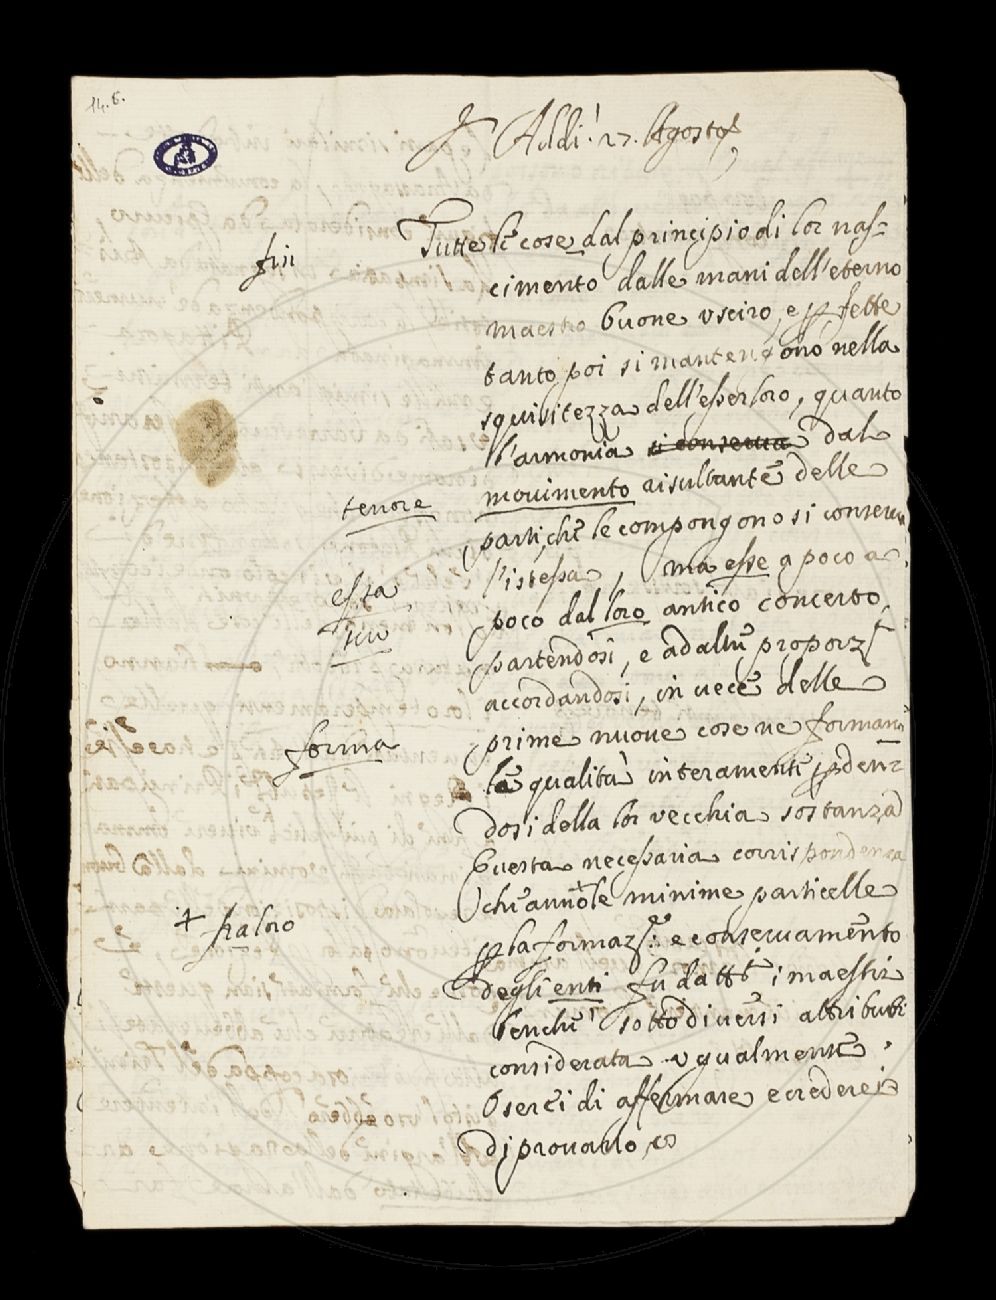 14. 6.
Addì 27. Agosto
fin
Tutte le cose dal principio di lor nas-
cimento dalle mani dell'eterno
maestro buone usciro, e ꝑfette
tanto poi si mantengono nella
squisitezza dell'esser loro, quanto
l'armonia si conserva dal
movimento risultante delle
tenore
parti, che le compongono si conserva
l'istessa, ma esse a poco a
essa
poco dal loro antico concerto,
partendosi, e ad altre proporz
accordandosi, in vece delle
forma
prime nuove cose ne forman
le qualità interamente ꝑden-
dosi della lor vecchia sostanza
Questa necessaria corrispondenza
che anno + le minime particelle
+ fra loro
ꝑ la formaz.e: e conservamento
degli enti fu da tt.i i maestri
benche sotto diversi attributi
considerata ugualmente.
O serci di affermare e credere
di provarlo, es